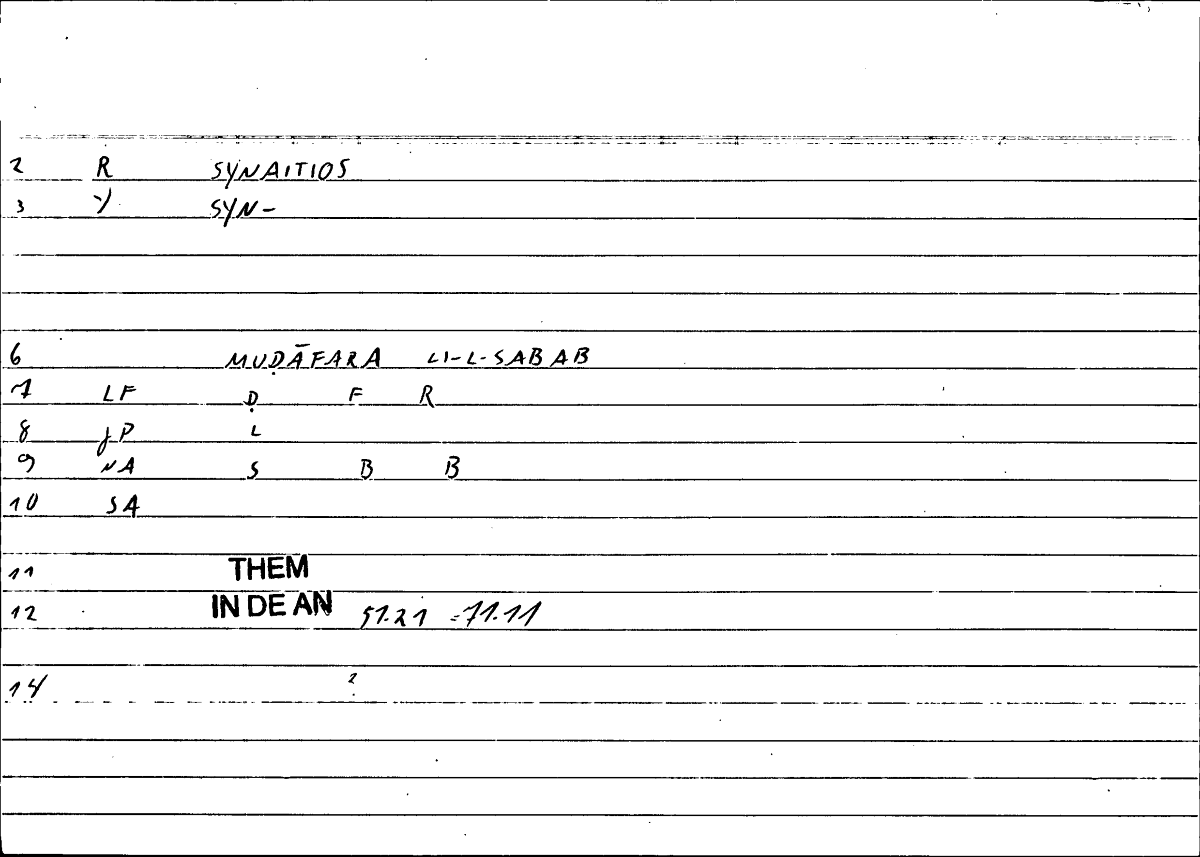 2 R SYNAITIOS
3 Y SYN-
6 MUḌĀFARA LI-L-SABAB
7 LF Ḍ F R
8 JP L
9 NA S B B
10 SA
11 THEM
12 IN DE AN 51.21 =71.11
14 2